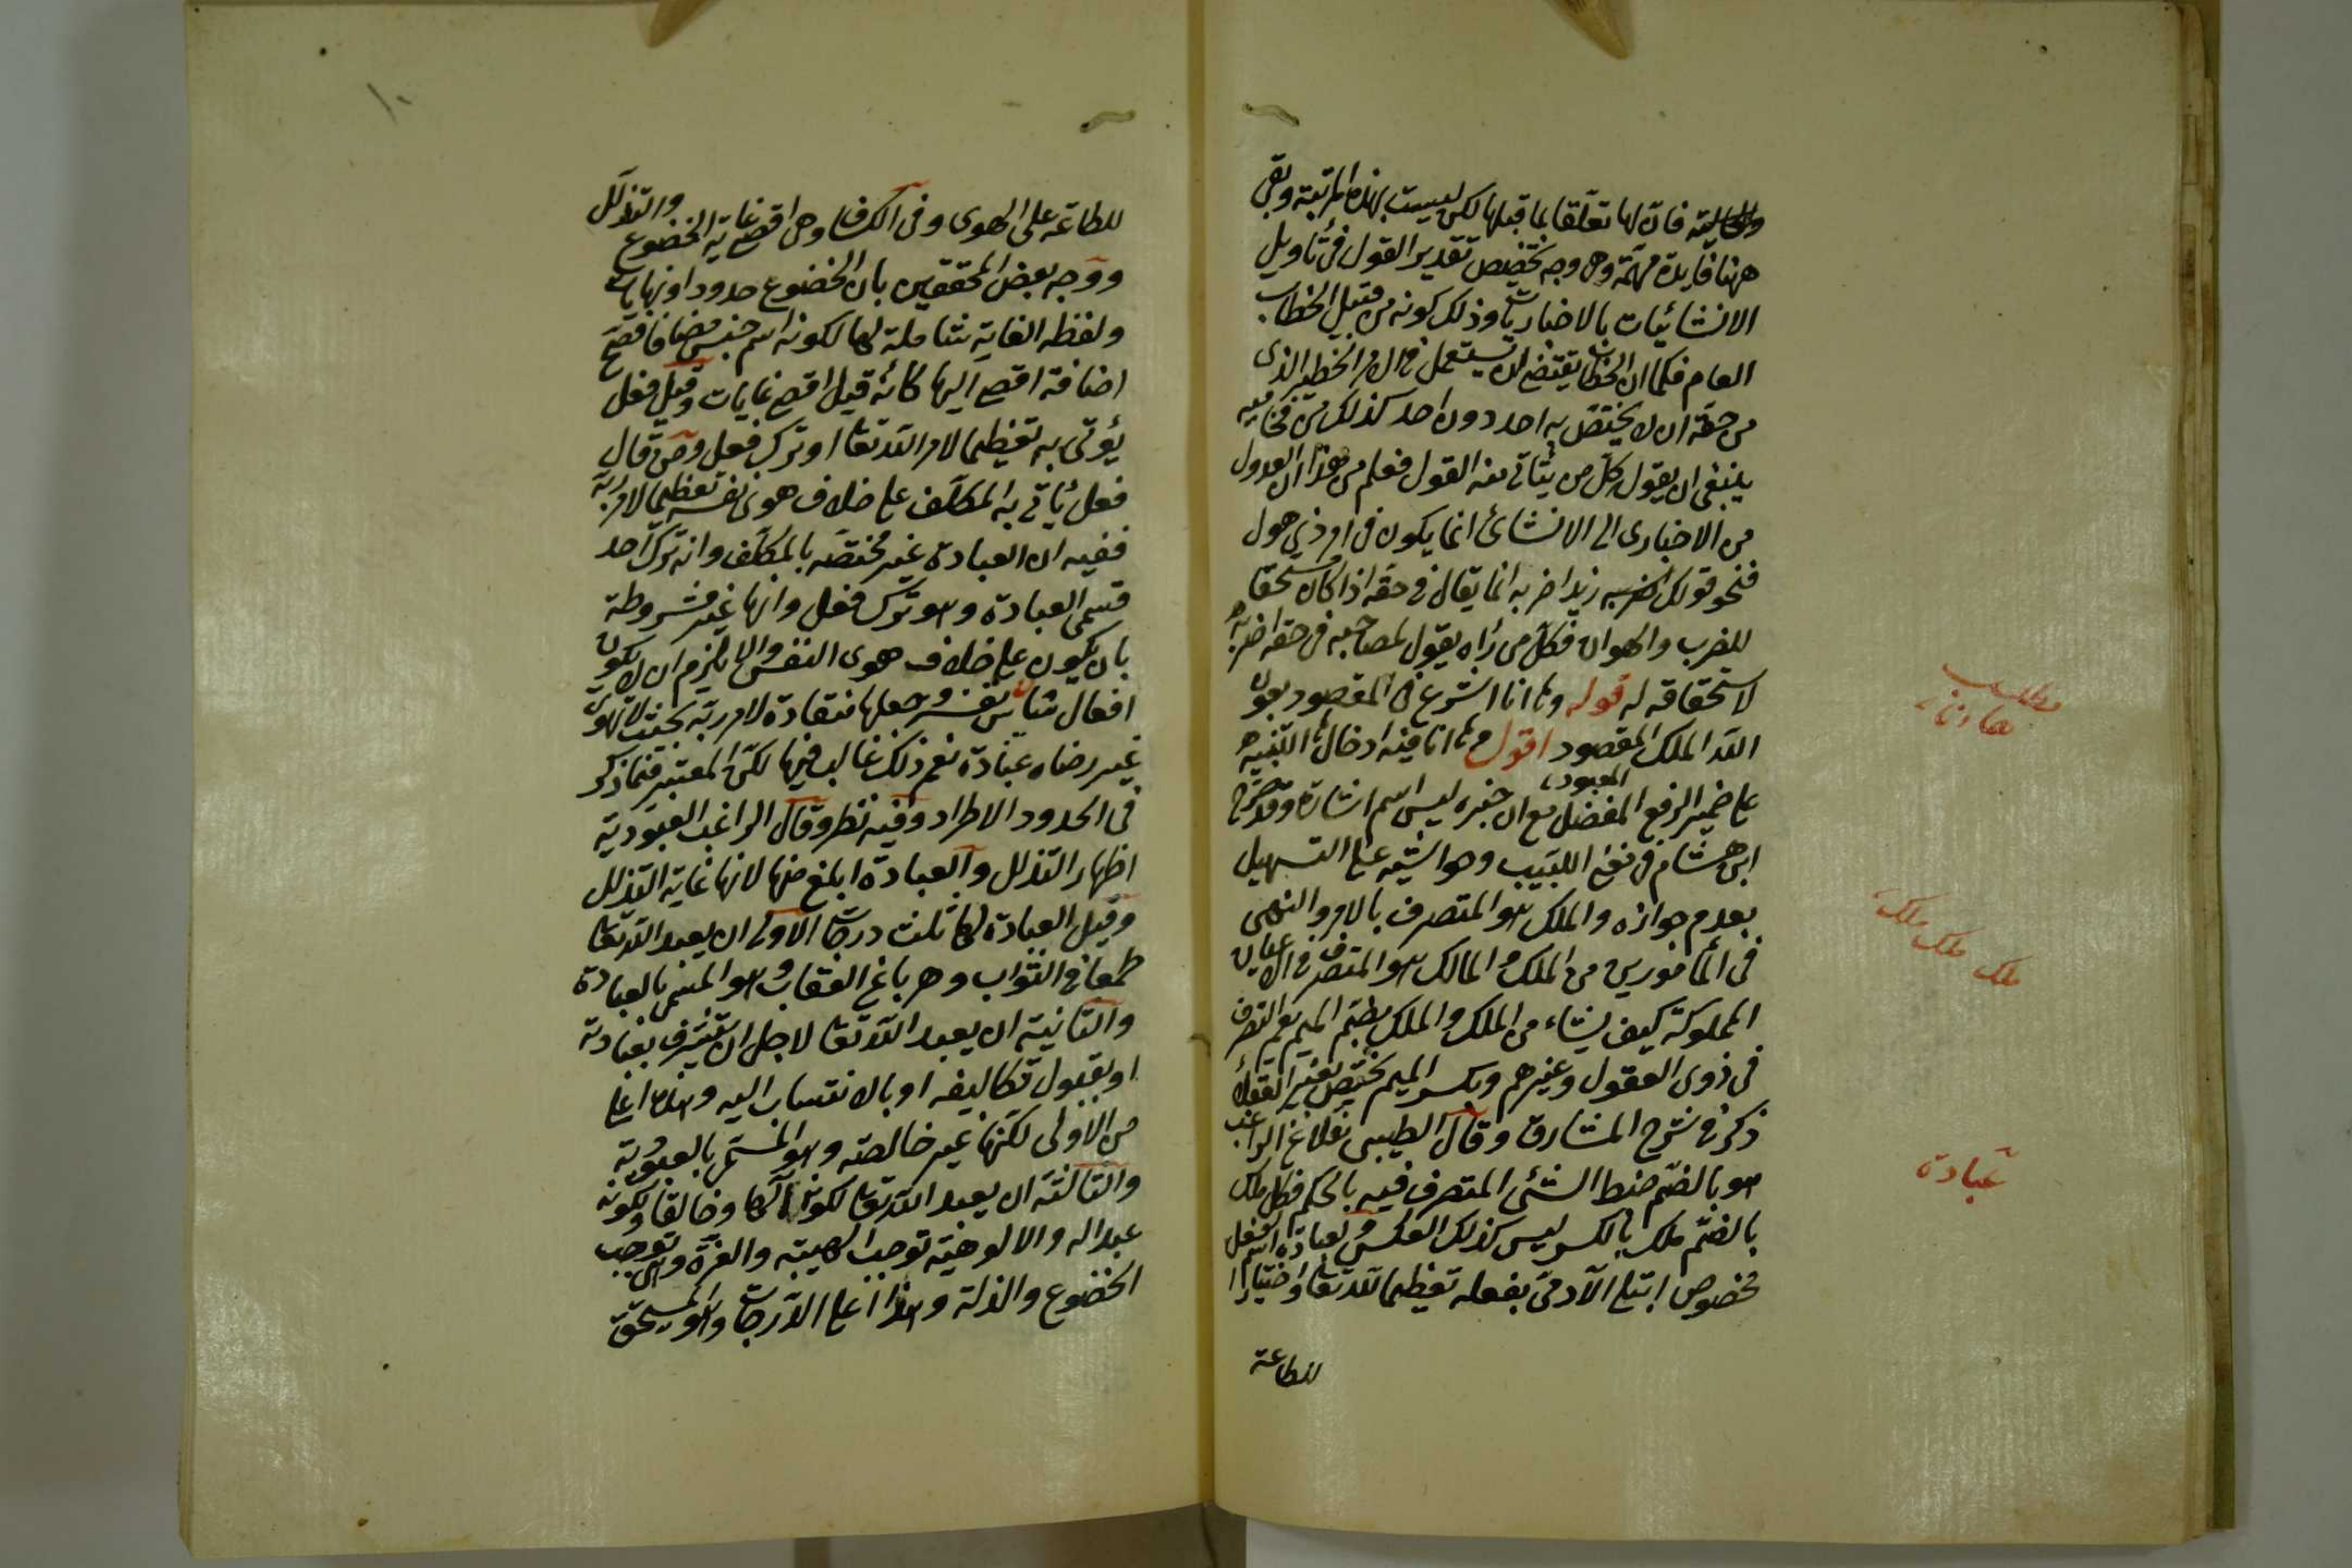 والحالية فان لها تعلقا بما قبلها لكن ليست بهذه المرتبة وبقى
ههنا فايدة مهمة وهى وجه تخصيص تقدير القول فى تأويل
الانشائيات بالاخباريات وذلك كونه من قبيل الخطاب
العام فكما ان الخطاب يقتضى ان يستعمل فى الامر الخطير الذى
من حقه ان لا يختص به احد دون احد كذلك من فخامته
ينبغى ان يقول كل من يتأتى منه القول فعلم من هذا ان العدول
من الاخبارى الى الانشائى انما يكون فى امر ذى هول
فنحو قولك زيدا اضربه انما يقال فى حقه اذا كان مستحقا
للضرب والهوان فكل من رآه يقول لصاحبه فى حقه اضربه
لاستحقاقه له قوله وها انا اشرع فى المقصود بعون
الله الملك المقصود اقول ها انا فيه ادخال ها التنبيه
المعبود
على ضمير الرفع المنفصل مع ان خبره ليس اسم اشارة وقد صرح
ابن هشام فى مغنى اللبيب وحواشيه على التسهيل
بعدم جوازه والملك هو المتصرف بالامر والنهى
فى المأمورين من الملك والمالك هو المتصرف فى الاعيان
المملوكة كيف يشاء من الملك والملك بضم الميم يعم التصرف
فى ذوى العقول وغيرهم وبكسر الميم يختص بغير العقلاء
ذكره فى شرح المشارق وقال الطيبى نقلا عن الراغب
هو بالضم ضبط الشئ المتصرف فيه بالحكم فكل ملك
بالضم ملك بالكسر وليس كذلك العكس والعبادة اسم لفعل
مخصوص ابتلى الآدمى بفعله تعظيما لله تعالى واختيارا
للطاعة
مطلب
ها انا
ملك ملك ملك
عبادة
١٠
للطاعة على الهوى وفى الكشاف وهى اقصى غاية الخضوع والتذلل
ووجه بعض المحققين بان الخضوع حدودا ونهايات
ولفظه الغاية شاملة لها لكونه اسم جنس مضافا فصح
اضافة اقصى اليها كأنه قيل اقصى غايات وقيل فعل
يؤتى به تعظيما لامر الله تعالى او ترك فعل ومن قال
فعل يأتى به المكلف على خلاف هوى نفسه تعظيما لامر ربه
ففيه ان العبادة غير مختصة بالمكلف وانه ترك احد
قسمى العبادة وهو ترك فعل وانها غير مشروطة
بان يكون على خلاف هوى النفس والا يلزم ان لا يكون
افعال من نفسه وجعلها منقادة لامر ربه بحيث لا تهوى
غير رضاه عبادة نعم ذلك غالب فيها لكن المعتبر فيما ذكر
فى الحدود الاطراد وفيه نظر وقال الراغب العبودية
اظهار التذلل والعبادة ابلغ منها لانها غاية التذلل
وقيل العبادة لها ثلث درجات الاولى ان يعبد الله تعالى
طمعا فى الثواب وهربا عن العقاب وهو المسمى بالعبادة
والثانية ان يعبد الله تعالى لاجل ان يتشرف بعبادته
او بقبول تكاليفه او بالانتساب اليه وهذه اعلى
من الاولى لكنها غير خالصة وهو المسمى بالعبودية
والثالثة ان يعبد الله تعالى لكونه الها وخالقا ولكونه
عبدا له والالوهية توجب الهيبة والعزة وهى توجب
الخضوع والذلة وهذا اعلى الدرجات وهو المستحق